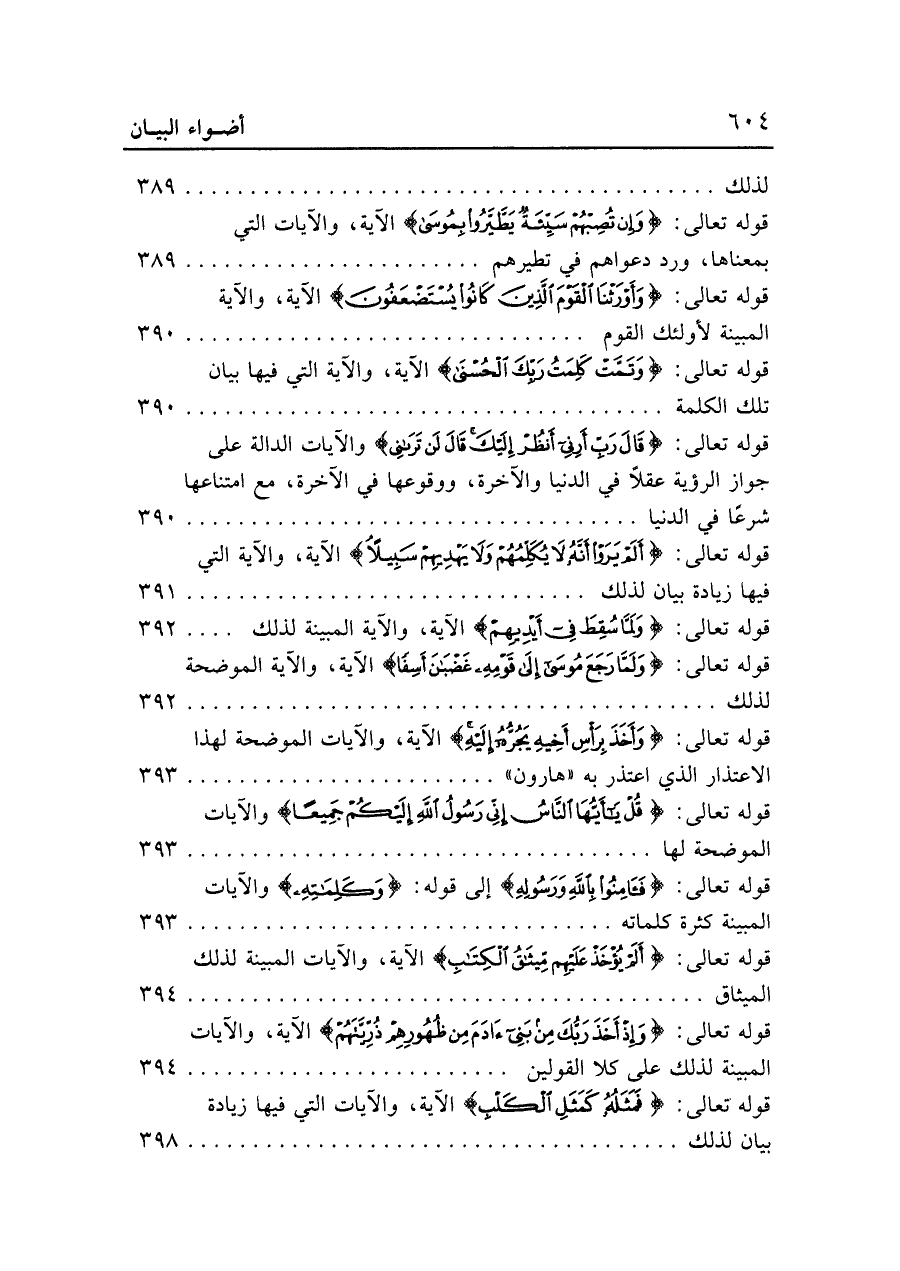 ٦٠٤ أضـواء البيـان
لذلك . . . . . . . . . . . . . . . . . . . . . . . . . . . . . . . . . . . . . . . . ٣٨٩
قوله تعالى: ﴿ وَإِن تُصِبْهُمْ سَيِّئَةٌ يَطَّيَّرُوا۟ بِمُوسَىٰ﴾ الآية، والآيات التي
بمعناها، ورد دعواهم في تطيرهم . . . . . . . . . . . . . . . . . . . . . . . ٣٨٩
قوله تعالى: ﴿ وَأَوْرَثْنَا ٱلْقَوْمَ ٱلَّذِينَ كَانُوا۟ يُسْتَضْعَفُونَ﴾ الآية، والآية
المبينة لأولئك القوم . . . . . . . . . . . . . . . . . . . . . . . . . . . . . . . ٣٩٠
قوله تعالى: ﴿ وَتَمَّتْ كَلِمَتُ رَبِّكَ ٱلْحُسْنَىٰ﴾ الآية، والآية التي فيها بيان
تلك الكلمة . . . . . . . . . . . . . . . . . . . . . . . . . . . . . . . . . . . . . ٣٩٠
قوله تعالى: ﴿ قَالَ رَبِّ أَرِنِىٓ أَنظُرْ إِلَيْكَ ۚ قَالَ لَن تَرَىٰنِى﴾ والآيات الدالة على
جواز الرؤية عقلاً في الدنيا والآخرة، ووقوعها في الآخرة، مع امتناعها
شرعًا في الدنيا . . . . . . . . . . . . . . . . . . . . . . . . . . . . . . . . . . . ٣٩٠
قوله تعالى: ﴿ أَلَمْ يَرَوْا۟ أَنَّهُۥ لَا يُكَلِّمُهُمْ وَلَا يَهْدِيهِمْ سَبِيلًا ۘ﴾ الآية، والآية التي
فيها زيادة بيان لذلك . . . . . . . . . . . . . . . . . . . . . . . . . . . . . . . ٣٩١
قوله تعالى: ﴿ وَلَمَّا سُقِطَ فِىٓ أَيْدِيهِمْ﴾ الآية، والآية المبينة لذلك . . . . ٣٩٢
قوله تعالى: ﴿ وَلَمَّا رَجَعَ مُوسَىٰٓ إِلَىٰ قَوْمِهِۦ غَضْبَـٰنَ أَسِفًا﴾ الآية، والآية الموضحة
لذلك . . . . . . . . . . . . . . . . . . . . . . . . . . . . . . . . . . . . . . . . . ٣٩٢
قوله تعالى: ﴿ وَأَخَذَ بِرَأْسِ أَخِيهِ يَجُرُّهُۥٓ إِلَيْهِ ۚ﴾ الآية، والآيات الموضحة لهذا
الاعتذار الذي اعتذر به «هارون» . . . . . . . . . . . . . . . . . . . . . . . . ٣٩٣
قوله تعالى: ﴿ قُلْ يَـٰٓأَيُّهَا ٱلنَّاسُ إِنِّى رَسُولُ ٱللَّهِ إِلَيْكُمْ جَمِيعًا﴾ والآيات
الموضحة لها . . . . . . . . . . . . . . . . . . . . . . . . . . . . . . . . . . . . ٣٩٣
قوله تعالى: ﴿ فَـَٔامِنُوا۟ بِٱللَّهِ وَرَسُولِهِ﴾ إلى قوله: ﴿ وَكَلِمَـٰتِهِۦ﴾ والآيات
المبينة كثرة كلماته . . . . . . . . . . . . . . . . . . . . . . . . . . . . . . . . . ٣٩٣
قوله تعالى: ﴿ أَلَمْ يُؤْخَذْ عَلَيْهِم مِّيثَـٰقُ ٱلْكِتَـٰبِ﴾ الآية، والآيات المبينة لذلك
الميثاق . . . . . . . . . . . . . . . . . . . . . . . . . . . . . . . . . . . . . . . . ٣٩٤
قوله تعالى: ﴿ وَإِذْ أَخَذَ رَبُّكَ مِنۢ بَنِىٓ ءَادَمَ مِن ظُهُورِهِمْ ذُرِّيَّتَهُمْ﴾ الآية، والآيات
المبينة لذلك على كلا القولين . . . . . . . . . . . . . . . . . . . . . . . . . ٣٩٤
قوله تعالى: ﴿ فَمَثَلُهُۥ كَمَثَلِ ٱلْكَلْبِ﴾ الآية، والآيات التي فيها زيادة
بيان لذلك . . . . . . . . . . . . . . . . . . . . . . . . . . . . . . . . . . . . . . ٣٩٨